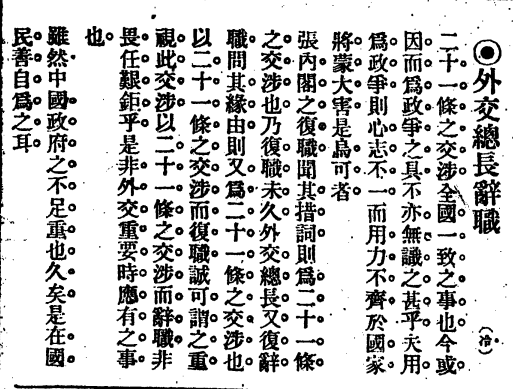 ◉外交總長辭職
（冷）
二十一條之交涉全國一致之事也今或
因而爲政爭之具不亦無識之甚乎夫用
爲政爭則心志不一而用力不齊於國家
將蒙大害是烏可者
張內閣之復職聞其措詞則爲二十一條
之交涉也乃復職未久外交總長又復辭
職問其緣由則又爲二十一條之交涉也
以二十一條之交涉而復職誠可謂之重
視此交涉以二十一條之交涉而辭職非
畏任艱鉅乎是非外交重要時應有之事
也
雖然中國政府之不足重也久矣是在國
民善自爲之耳